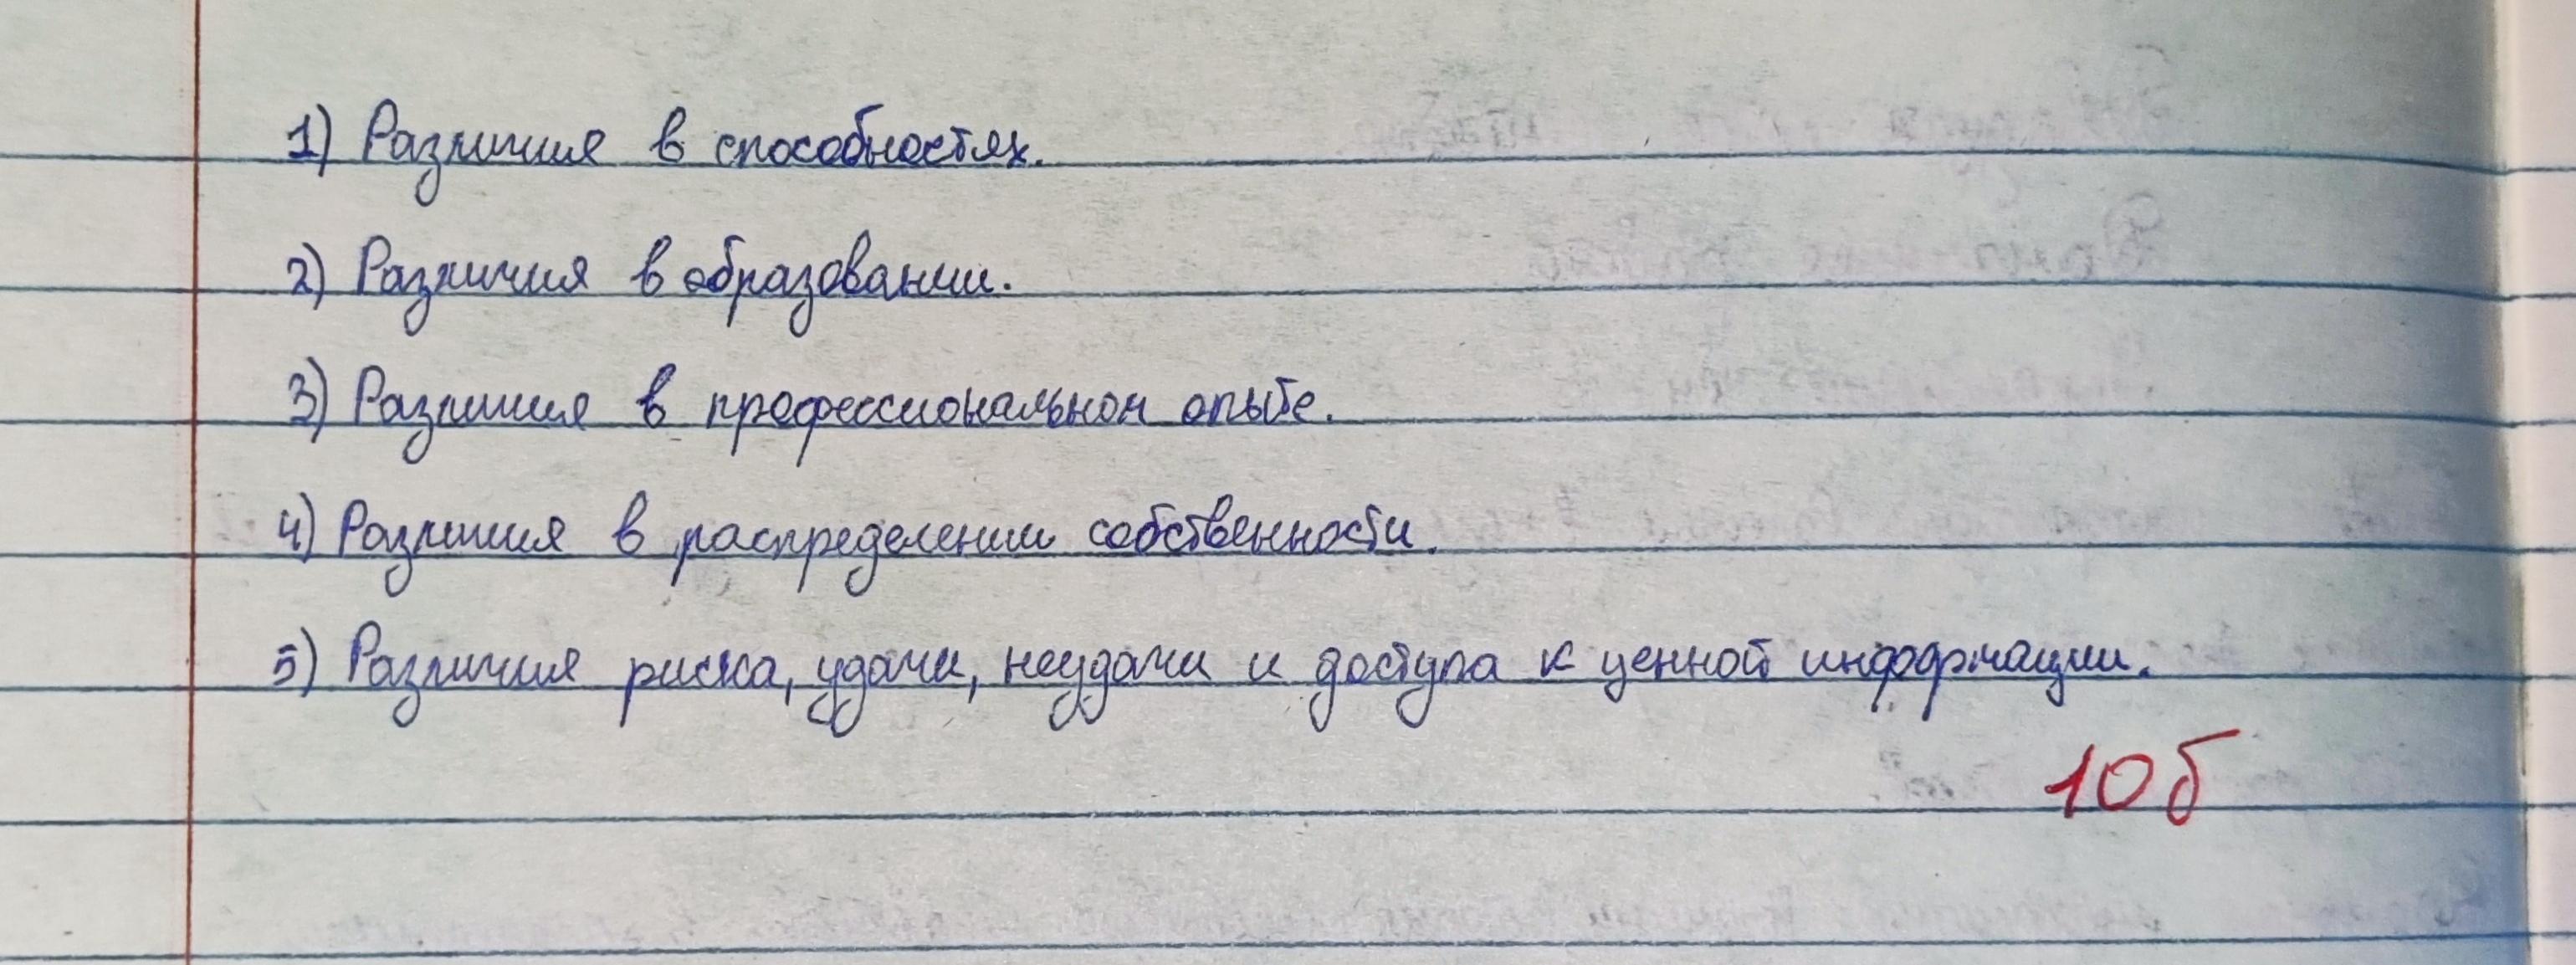 1) Различия в способностях.
2) Различия в образовании.
3) Различия в профессиональном опыте.
4) Различия в распределении собственности.
5) Различия риска, удачи, неудачи и доступа к ценной информации.
10б